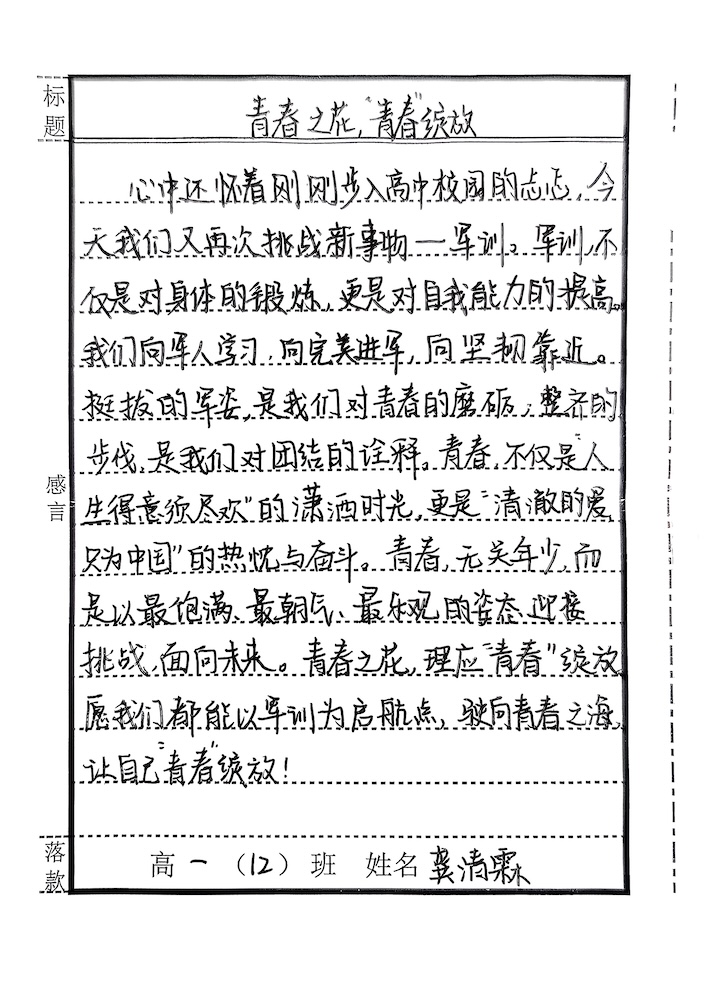 标题
青春之花，“青春”绽放
心中还怀着刚刚步入高中校园的忐忑，今
天我们又再次挑战新事物—军训。军训，不
仅是对身体的锻炼，更是对自我能力的提高。
我们向军人学习，向完美进军，向坚韧靠近。
挺拔的军姿，是我们对青春的磨砺，整齐的
步伐，是我们对团结的诠释。青春，不仅是“人
生得意须尽欢”的潇洒时光，更是“清澈的爱，
只为中国”的热忱与奋斗。青春，无关年少，而
是以最饱满、最朝气、最乐观的姿态迎接
挑战，面向未来。青春之花，理应“青春”绽放，
愿我们都能以军训为启航点，驶向青春之海，
让自己“青春”绽放！
感言
落款
高一（12）班 姓名 龚清霖